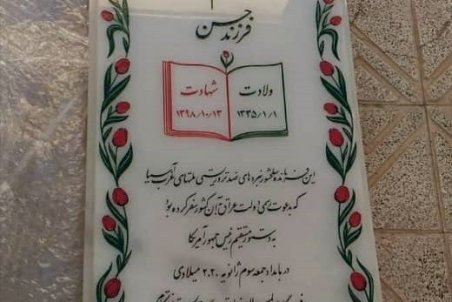 فرزند حسن
ولادت شهادت
۱۳۳۵/۱/۱ ۱۳۹۸/۱۰/۱۳
این فرمانده پرشور نبردهای ضد تروریستی ملتهای غرب آسیا
که به دعوت رسمی دولت عراق به آن کشور سفر کرده بود
به دستور مستقیم رئیس جمهور آمریکا
در بامداد جمعه سوم ژانویه ۲۰۲۰ میلادی